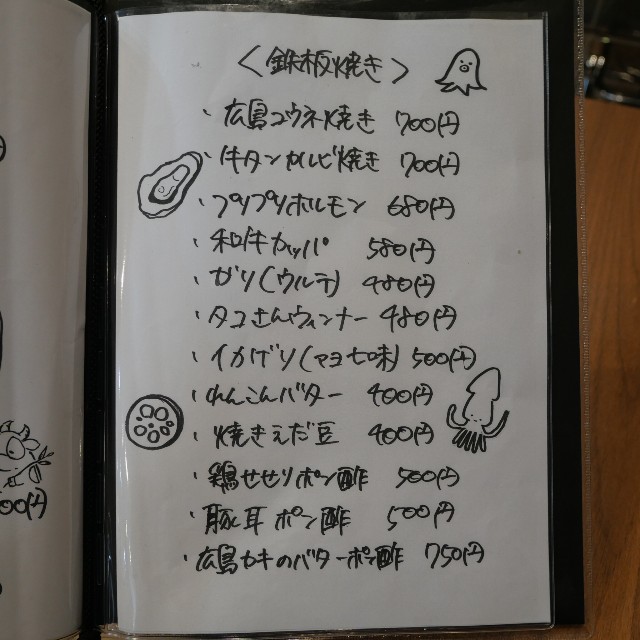 <鉄板焼き>
・広島コウネ焼き 700円
・牛タンカルビ焼き 700円
・プリプリホルモン 680円
・和牛カッパ 580円
・ガリ(ウルテ) 480円
・タコさんウィンナー 480円
・イカゲソ(マヨ七味) 500円
・れんこんバター 400円
・焼きえだ豆 400円
・鶏せせりポン酢 500円
・豚耳ポン酢 500円
・広島カキのバターポン酢 750円
00円